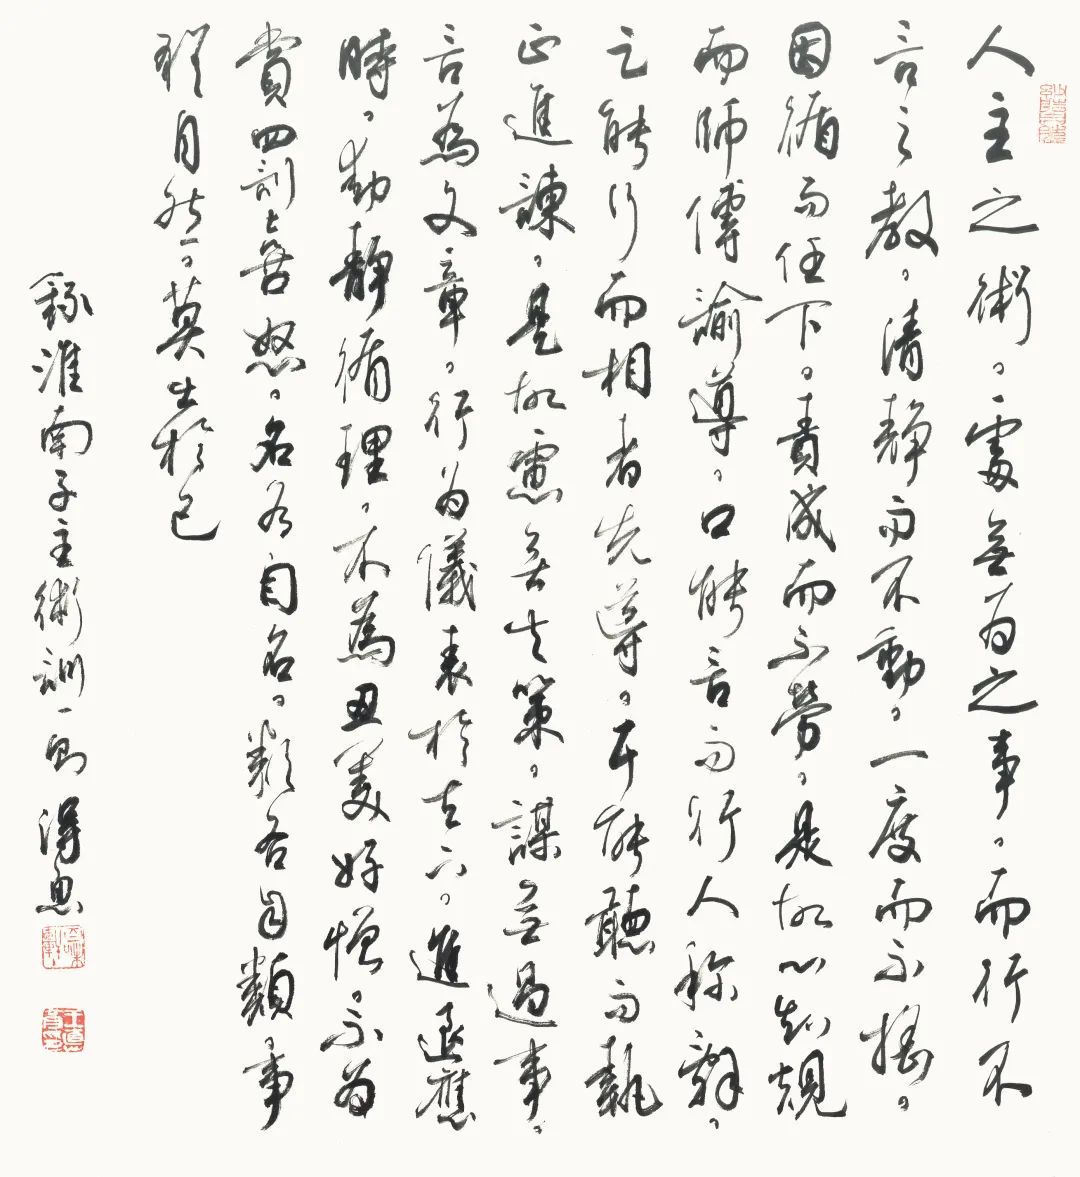 人主之術。處無為之事。而行不
言之教。清靜而不動。一度而不搖。
因循而任下。責成而不勞。是故心知規
而師傅諭導。口能言而行人称辭。
足能行而相者先導。耳能聽而執
正進諫。是故慮無失策。謀無過事。
言為文章。行为儀表於天下。進退應
時。動靜循理。不為丑美好憎。不为
賞罰喜怒。名各自名。類各自類。事
猶自然。莫出於己
錄淮南子主術訓一則